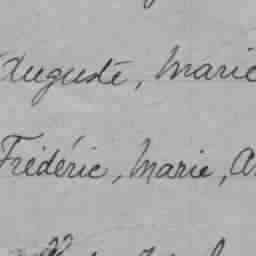 Auguste, Marie
Frédéric, Marie, A